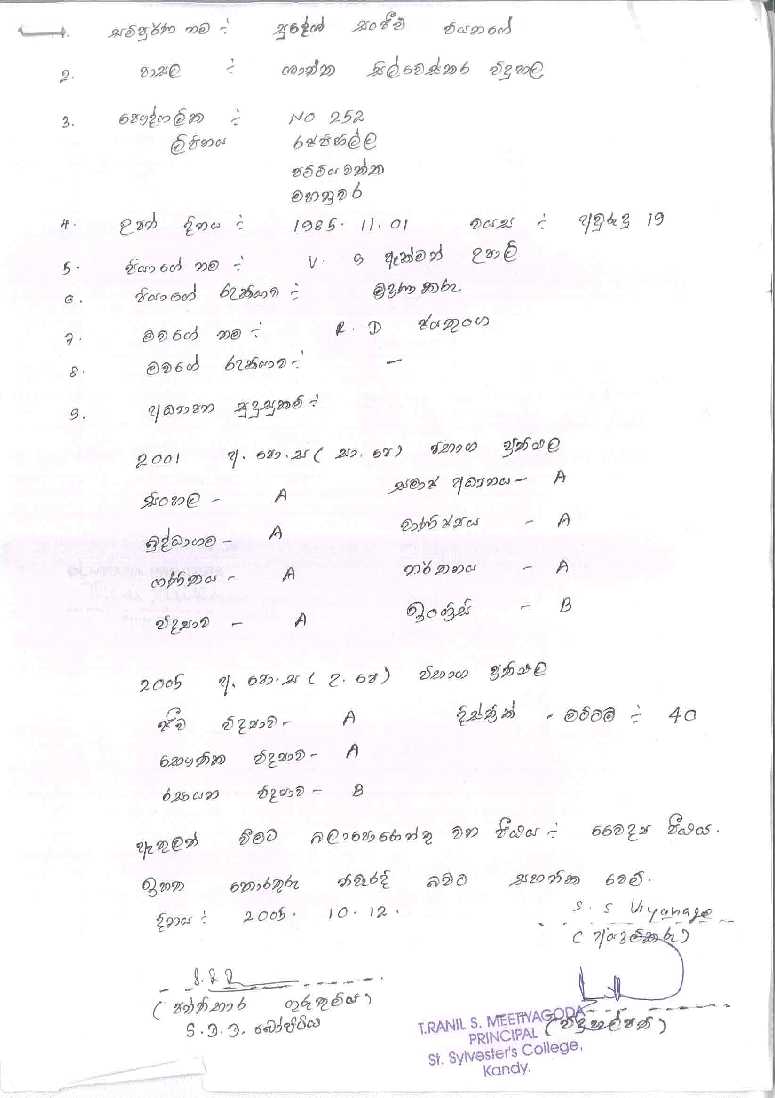 1. සම්පූර්ණ නම :- සුදේශ් සංජීව වියනගේ
2. පාසල :- ශාන්ත සිල්වෙස්තර විදුහල
3. පෞද්ගලික :- NO 252
ලිපිනය රජපිහිල්ල
පට්ටියවත්ත
මහනුවර
4. උපන් දිනය :- 1985.11.01 වයස :- අවුරුදු 19
5. පියාගේ නම :- V. G ඇක්මන් උපාලි
6. පියාගේ රැකියාව :- මුද්‍රණකරු.
7. මවගේ නම :- R. D ජයතුංග
8. මවගේ රැකියාව :- —
9. අධ්‍යාපන සුදුසුකම් :-
2001 අ. පො. ස ( සා. පෙ ) විභාග ප්‍රතිඵල
සිංහල - A සමාජ අධ්‍යනය - A
බුද්ධාගම - A වාණිජ්‍යය - A
ගණිතය - A නර්තනය - A
විද්‍යාව - A ඉංග්‍රීසි - B
2005 අ. පො. ස ( උ. පෙ ) විභාග ප්‍රතිඵල
ජීව විද්‍යාව - A දිස්ත්‍රික් - මට්ටම :- 40
භෞතික විද්‍යාව - A
රසායන විද්‍යාව - B
ඇතුලත් වීමට බලාපොරොත්තු වන පීඨය :- වෛද්‍ය පීඨය.
ඉහත තොරතුරු නිවැරදි බවට සහතික වෙමි.
දිනය :- 2005. 10. 12. S. S Viyanage
( අයදුම්කරු )
( පන්තිභාර ගුරුතුමිය ) ( විදුහල්පති )
T.RANIL S. MEETIYAGODA
PRINCIPAL
St. Sylvester's College,
Kandy.